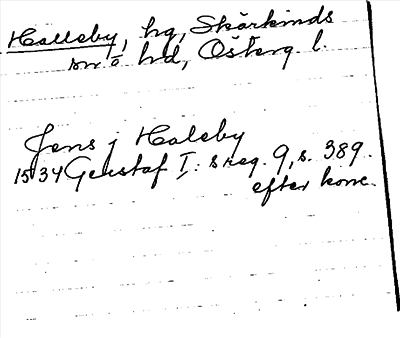 Halleby, hg, Skärkinds
sn o hd, Österg. l.
Jens j Haleby
1534 Gustaf I: s reg. 9, s. 389.
efter konc.